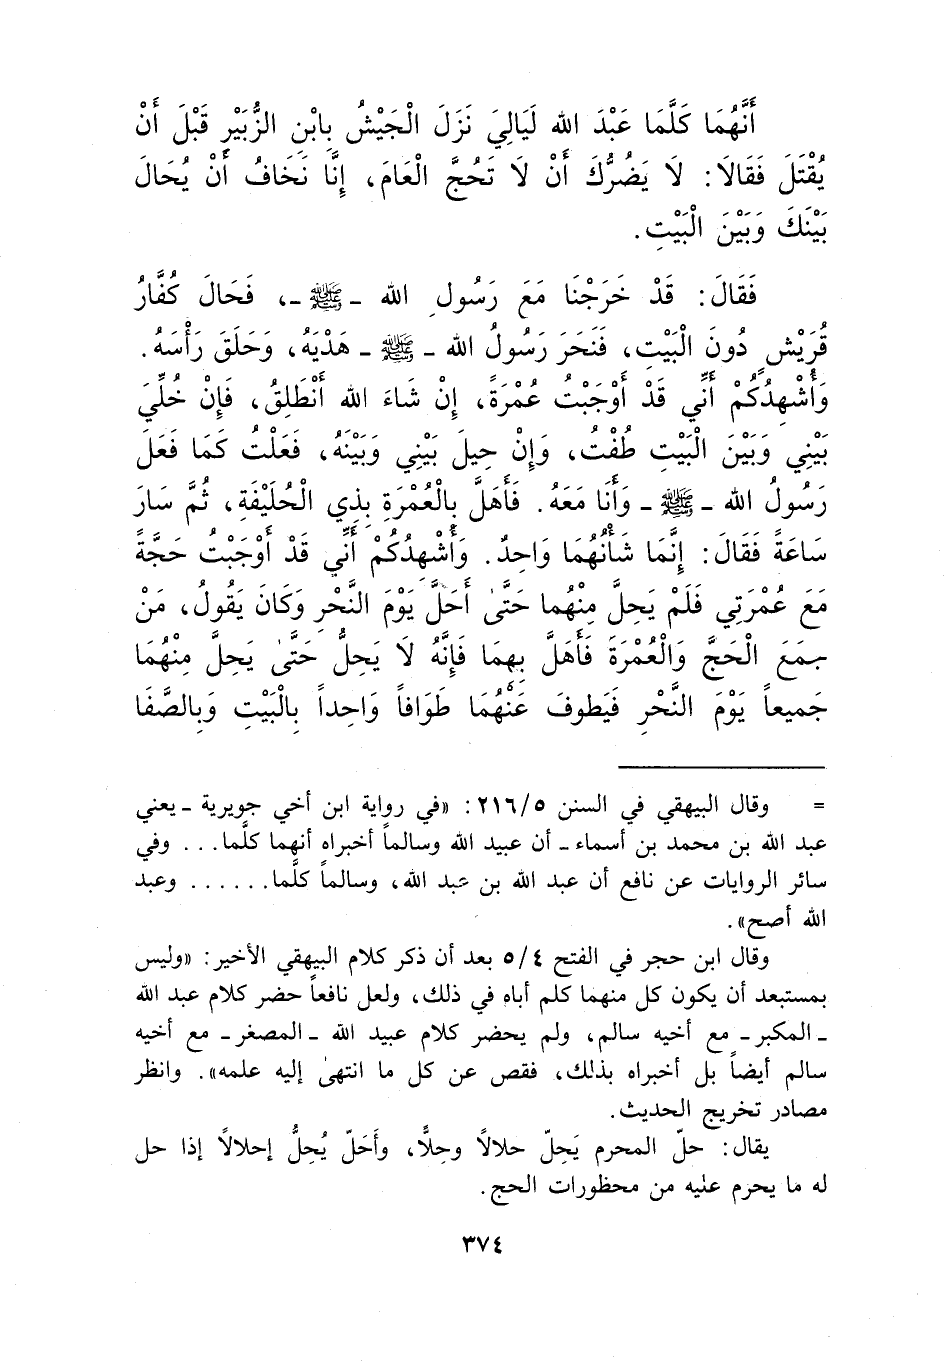 أَنَّهُمَا كَلَّمَا عَبْدَ الله لَيَالِيَ نَزَلَ الْجَيْشُ بِابْنِ الزُّبَيْرِ قَبْلَ أَنْ
يُقْتَلَ فَقَالَا: لَا يَضُرُّكَ أَنْ لَا تَحُجَّ الْعَامَ، إِنَّا نَخَافُ أَنْ يُحَالَ
بَيْنَكَ وَبَيْنَ الْبَيْتِ.
فَقَالَ: قَدْ خَرَجْنَا مَعَ رَسُولِ الله ـ ﷺ ـ، فَحَالَ كُفَّارُ
قُرَيْشٍ دُونَ الْبَيْتِ، فَنَحَرَ رَسُولُ الله ـ ﷺ ـ هَدْيَهُ، وَحَلَقَ رَأْسَهُ.
وَأُشْهِدُكُمْ أَنِّي قَدْ أَوْجَبْتُ عُمْرَةً، إِنْ شَاءَ الله أَنْطَلِقُ، فَإِنْ خُلِّيَ
بَيْنِي وَبَيْنَ الْبَيْتِ طُفْتُ، وَإِنْ حِيلَ بَيْنِي وَبَيْنَهُ، فَعَلْتُ كَمَا فَعَلَ
رَسُولُ الله ـ ﷺ ـ وَأَنَا مَعَهُ. فَأَهَلَّ بِالْعُمْرَةِ بِذِي الْحُلَيْفَةِ، ثُمَّ سَارَ
سَاعَةً فَقَالَ: إِنَّمَا شَأْنُهُمَا وَاحِدٌ. وَأُشْهِدُكُمْ أَنِّي قَدْ أَوْجَبْتُ حَجَّةً
مَعَ عُمْرَتِي فَلَمْ يَحِلَّ مِنْهُما حَتَّىٰ أَحَلَّ يَوْمَ النَّحْرِ وَكَانَ يَقُولُ، مَنْ
جمَعَ الْحَجَّ وَالْعُمْرَةَ فَأَهَلَّ بِهِمَا فَإِنَّهُ لَا يَحِلُّ حَتَّىٰ يَحِلَّ مِنْهُمَا
جَمِيعاً يَوْمَ النَّحْرِ فَيَطوفَ عَنْهُمَا طَوَافاً وَاحِداً بِالْبَيْتِ وَبِالصَّفَا
= وقال البيهقي في السنن ٢١٦/٥: «في رواية ابن أخي جويرية ـ يعني
عبد الله بن محمد بن أسماء ـ أن عبيد الله وسالماً أخبراه أنهما كلَّما... وفي
سائر الروايات عن نافع أن عبد الله بن عبد الله، وسالماً كلَّما...... وعبد
الله أصح».
وقال ابن حجر في الفتح ٥/٤ بعد أن ذكر كلام البيهقي الأخير: «وليس
بمستبعد أن يكون كل منهما كلم أباه في ذلك، ولعل نافعاً حضر كلام عبد الله
ـ المكبر ـ مع أخيه سالم، ولم يحضر كلام عبيد الله ـ المصغر ـ مع أخيه
سالم أيضاً بل أخبراه بذلك، فقص عن كل ما انتهىٰ إليه علمه». وانظر
مصادر تخريج الحديث.
يقال: حلّ المحرم يَحِلّ حلالاً وحِلاًّ، وأَحَلّ يُحِلُّ إحلالاً إذا حل
له ما يحرم عليه من محظورات الحج.
٣٧٤